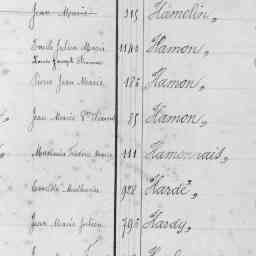 Jean Marie 315 Hamelin,
Emile Julien Marie 1140 Hamon,
Louis Joseph
Pierre Jean Marie 186 Hamon,
Jean Marie Pre 85 Hamon,
Mathurin Frédéric Marie 111 Hamonnais,
Mathurin 928 Hardé,
Jean Marie Julien 795 Hardy,